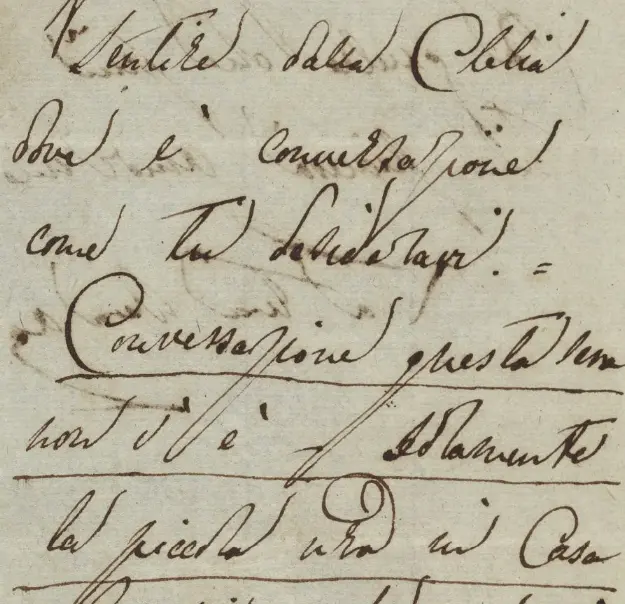 sentire dalla Clelia
dove è conversazione
come tu desideravi. =
Conversazione questa sera
non v'è - solamente
la piccola in Casa